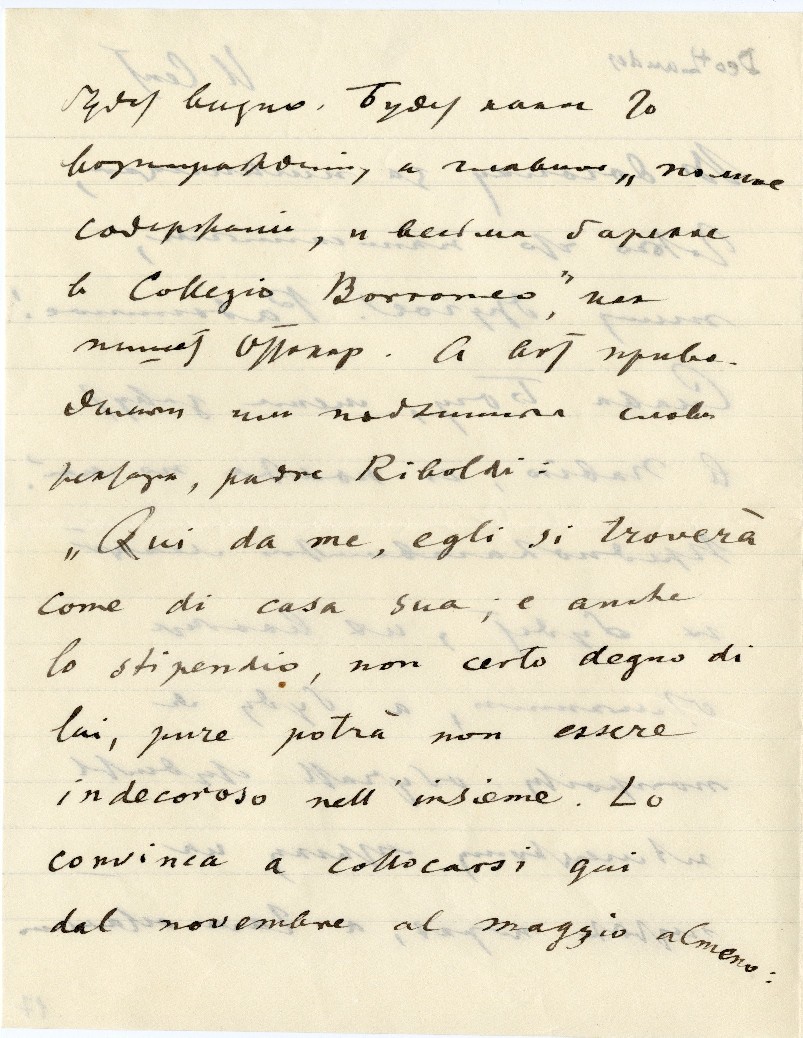 будет видно. Будет какое то
вознаграждение, а главное „полное
содержание, и весьма барское
в Collegio Borromeo”, как
пишет Оттокар. А вот приво-
димыя им подлинныя слова
ректора, padre Riboldi:
„Qui da me, egli si troverà
come di casa sua; e anche
lo stipendio, non certo degno di
lui, pure potrà non essere
indecoroso nell'insieme. Lo
convinca a collocarsi qui
dal novembre al maggio almeno: